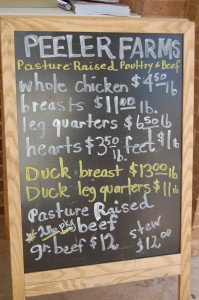 PEELER FARMS
Pasture Raised Poultry & Beef
whole chicken $4.50 lb.
breasts $11.00 lb.
leg quarters $6.50 lb
hearts $3.50 lb. feet $1 lb
Duck breast $13.00 lb
Duck leg quarters $11 lb
Pasture Raised
beef
gr. beef $12
stew $12.00